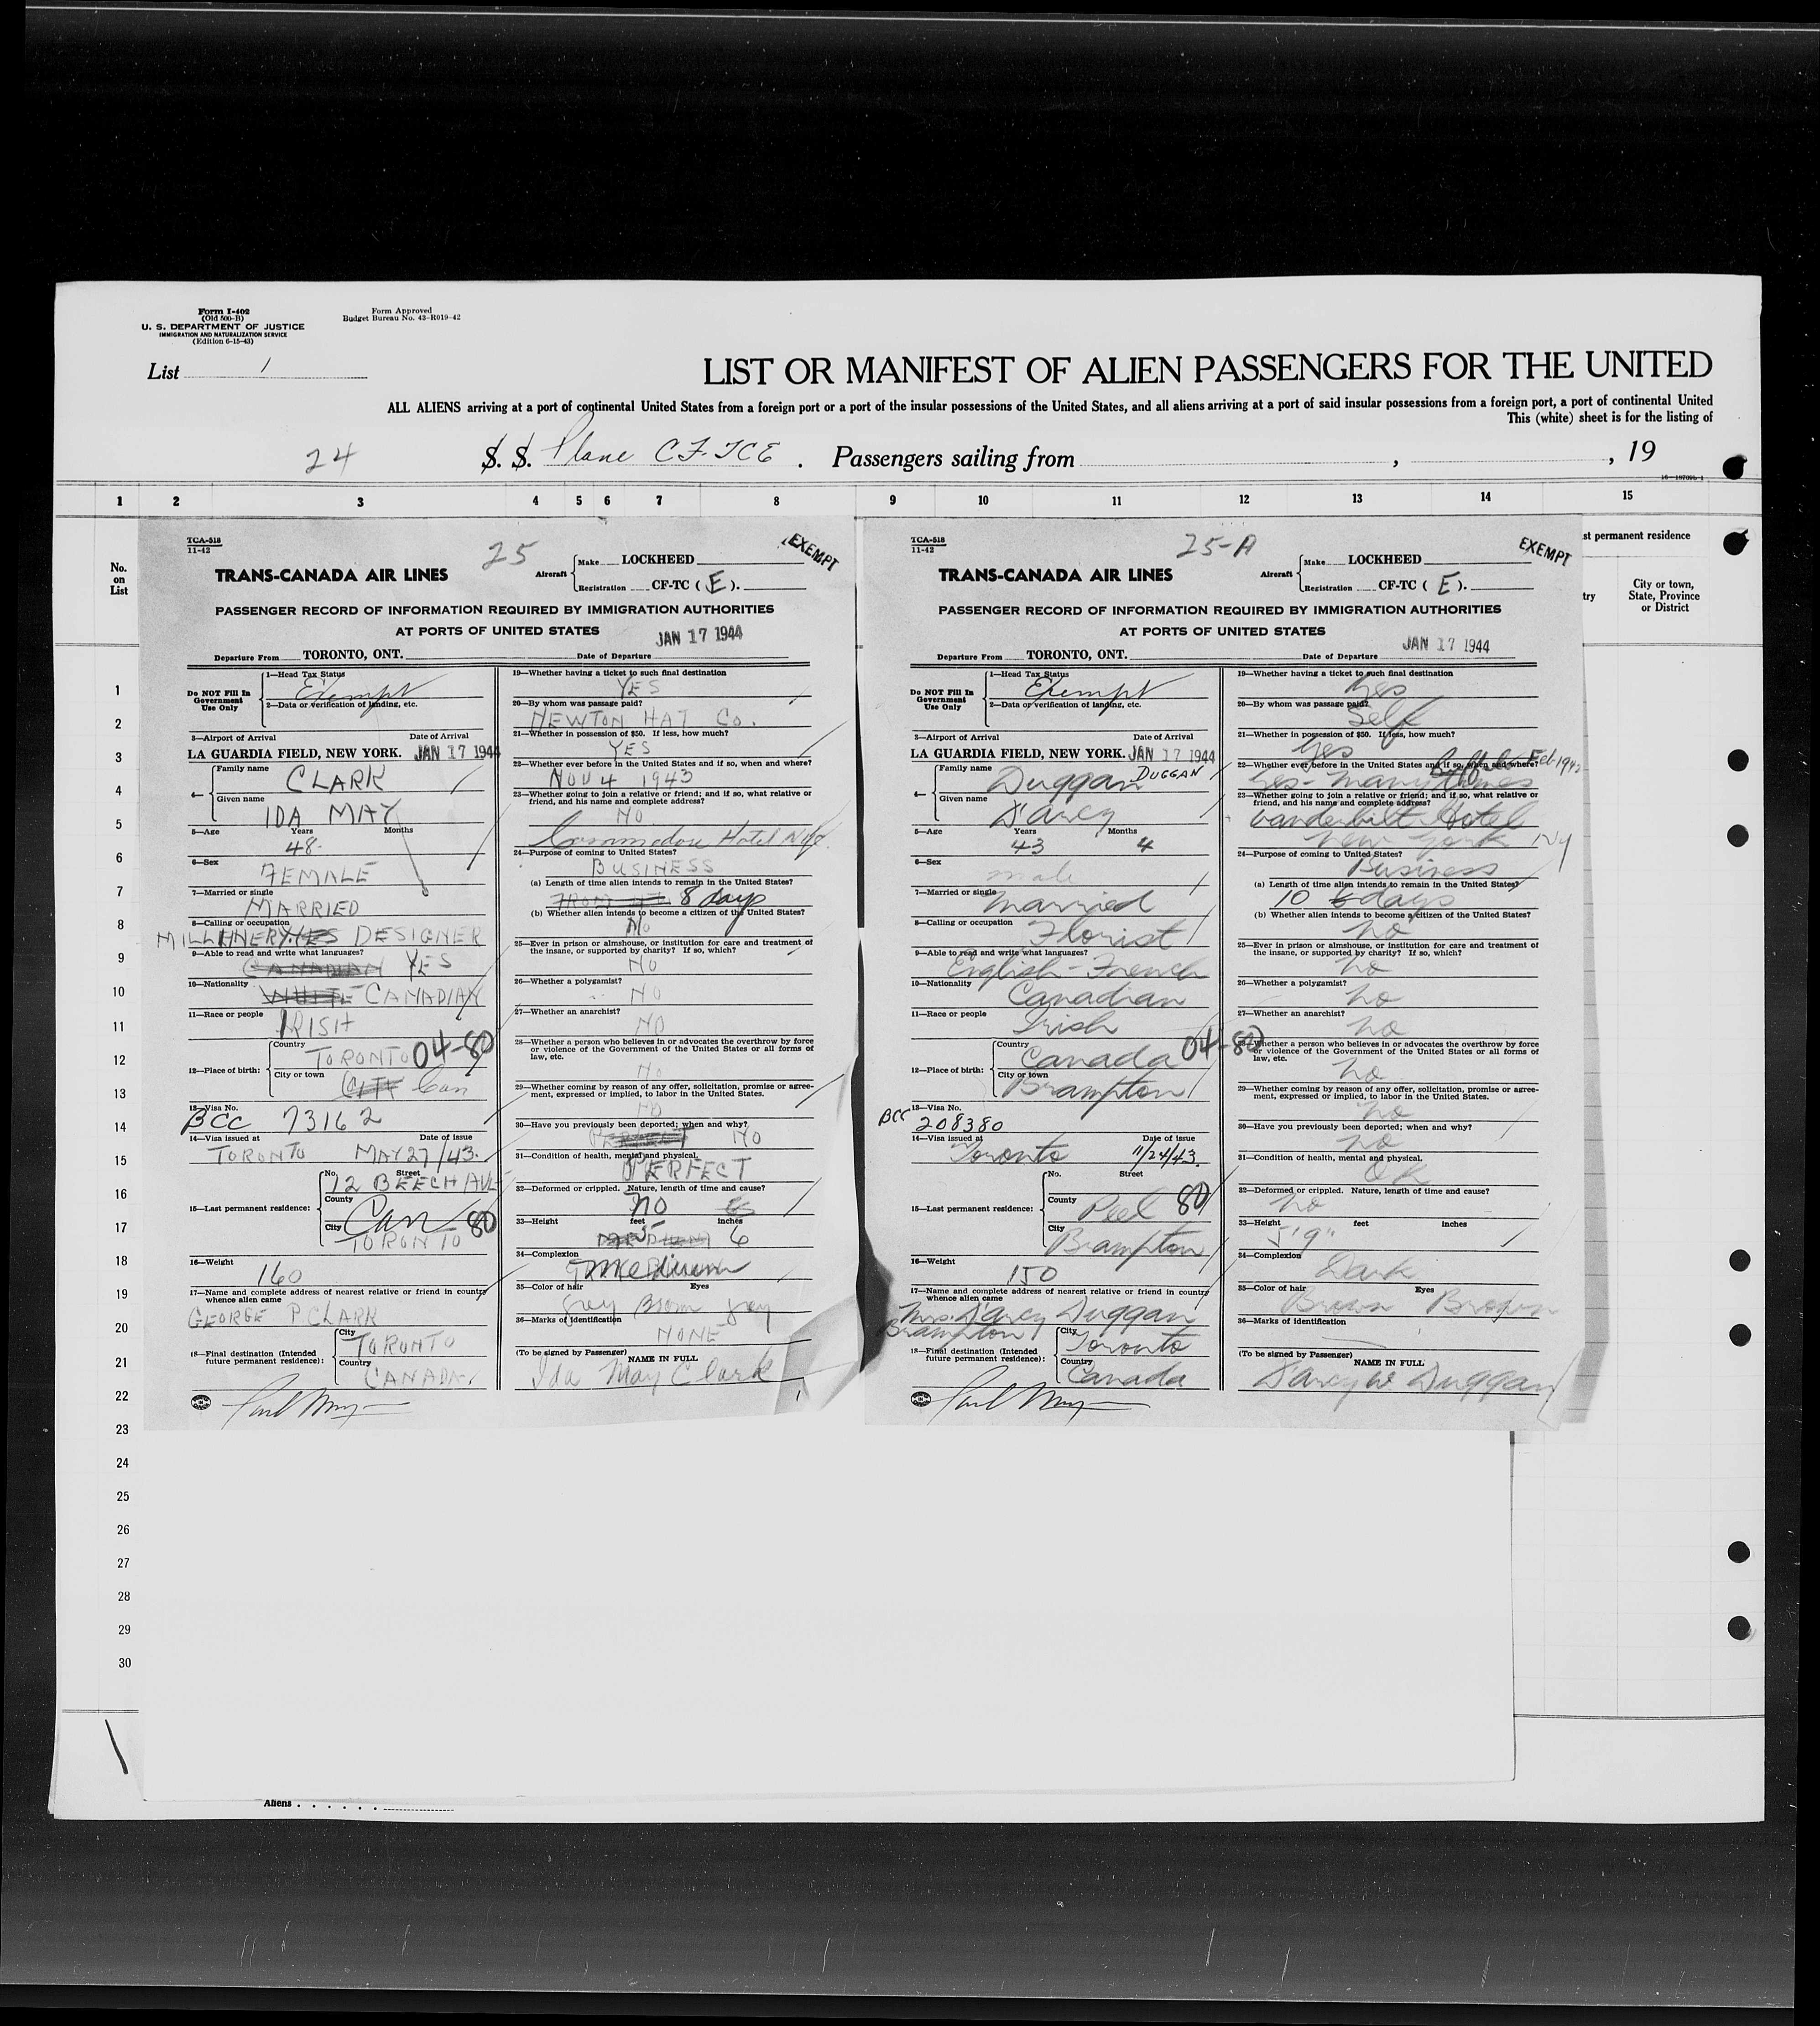 Form I-402
(Old 500-B)
U. S. DEPARTMENT OF JUSTICE
IMMIGRATION AND NATURALIZATION SERVICE
(Edition 6-15-43)
Form Approved
Budget Bureau No. 43-R019-42
List 1
LIST OR MANIFEST OF ALIEN PASSENGERS FOR THE UNITED
ALL ALIENS arriving at a port of continental United States from a foreign port or a port of the insular possessions of the United States, and all aliens arriving at a port of said insular possessions from a foreign port, a port of continental United
This (white) sheet is for the listing of
24 S. S. Plane CF-TCE . Passengers sailing from , , 19
1 2 3 4 5 6 7 8 9 10 11 12 13 14 15
No. on List
st permanent residence
try
City or town, State, Province or District
1
2
3
4
5
6
7
8
9
10
11
12
13
14
15
16
17
18
19
20
21
22
23
24
25
26
27
28
29
30
TCA-518
11-42
25
EXEMPT
TRANS-CANADA AIR LINES
Aircraft
Make LOCKHEED
Registration CF-TC (E).
PASSENGER RECORD OF INFORMATION REQUIRED BY IMMIGRATION AUTHORITIES
AT PORTS OF UNITED STATES
JAN 17 1944
Departure From TORONTO, ONT. Date of Departure
Do NOT Fill In Government Use Only
1—Head Tax Status
Exempt
2—Data or verification of landing, etc.
3—Airport of Arrival Date of Arrival
LA GUARDIA FIELD, NEW YORK. JAN 17 1944
4—
Family name
CLARK
Given name
IDA MAY
5—Age Years Months
48
6—Sex
FEMALE
7—Married or single
MARRIED
8—Calling or occupation
MILLINERY DESIGNER
9—Able to read and write what languages?
CANADIAN YES
10—Nationality
WHITE CANADIAN
11—Race or people
IRISH
12—Place of birth:
Country
TORONTO 04-80
City or town
Can
13—Visa No.
BCC 73162
14—Visa issued at Date of issue
TORONTO MAY 27/43.
15—Last permanent residence:
No. Street
72 BEECH AVE
County
Can 80
City
TORONTO
16—Weight
160
17—Name and complete address of nearest relative or friend in country whence alien came
GEORGE P. CLARK
18—Final destination (Intended future permanent residence):
City
TORONTO
Country
CANADA
19—Whether having a ticket to such final destination
YES
20—By whom was passage paid?
NEWTON HAT Co.
21—Whether in possession of $50. If less, how much?
YES
22—Whether ever before in the United States and if so, when and where?
NOV 4 1943
23—Whether going to join a relative or friend; and if so, what relative or friend, and his name and complete address?
NO
Commodore Hotel NYC
24—Purpose of coming to United States?
BUSINESS
(a) Length of time alien intends to remain in the United States?
8 days
(b) Whether alien intends to become a citizen of the United States?
No
25—Ever in prison or almshouse, or institution for care and treatment of the insane, or supported by charity? If so, which?
NO
26—Whether a polygamist?
NO
27—Whether an anarchist?
NO
28—Whether a person who believes in or advocates the overthrow by force or violence of the Government of the United States or all forms of law, etc.
NO
29—Whether coming by reason of any offer, solicitation, promise or agreement, expressed or implied, to labor in the United States.
NO
30—Have you previously been deported; when and why?
NO
31—Condition of health, mental and physical.
PERFECT
32—Deformed or crippled. Nature, length of time and cause?
no
33—Height feet inches
5 6
34—Complexion
Medium
35—Color of hair Eyes
Grey Brown Grey
36—Marks of identification
NONE
(To be signed by Passenger) NAME IN FULL
Ida May Clark
TCA-518
11-42
25-A
EXEMPT
TRANS-CANADA AIR LINES
Aircraft
Make LOCKHEED
Registration CF-TC (E).
PASSENGER RECORD OF INFORMATION REQUIRED BY IMMIGRATION AUTHORITIES
AT PORTS OF UNITED STATES
JAN 17 1944
Departure From TORONTO, ONT. Date of Departure
Do NOT Fill In Government Use Only
1—Head Tax Status
Exempt
2—Data or verification of landing, etc.
3—Airport of Arrival Date of Arrival
LA GUARDIA FIELD, NEW YORK. JAN 17 1944
4—
Family name
Duggan DUGGAN
Given name
D'arcy
5—Age Years Months
43 4
6—Sex
male
7—Married or single
Married
8—Calling or occupation
Florist
9—Able to read and write what languages?
English - French
10—Nationality
Canadian
11—Race or people
Irish
12—Place of birth:
Country
Canada 04-80
City or town
Brampton
13—Visa No.
BCC 208380
14—Visa issued at Date of issue
Toronto 11/24/43.
15—Last permanent residence:
No. Street
County
Peel 80
City
Brampton
16—Weight
150
17—Name and complete address of nearest relative or friend in country whence alien came
Mrs. D'arcy Duggan
Brampton
18—Final destination (Intended future permanent residence):
City
Toronto
Country
Canada
19—Whether having a ticket to such final destination
Yes
20—By whom was passage paid?
Self
21—Whether in possession of $50. If less, how much?
Yes
22—Whether ever before in the United States and if so, when and where?
Yes - Many times Buffalo Feb 1942
23—Whether going to join a relative or friend; and if so, what relative or friend, and his name and complete address?
Vanderbilt Hotel
New York NY
24—Purpose of coming to United States?
Business
(a) Length of time alien intends to remain in the United States?
10 days
(b) Whether alien intends to become a citizen of the United States?
no
25—Ever in prison or almshouse, or institution for care and treatment of the insane, or supported by charity? If so, which?
no
26—Whether a polygamist?
no
27—Whether an anarchist?
no
28—Whether a person who believes in or advocates the overthrow by force or violence of the Government of the United States or all forms of law, etc.
no
29—Whether coming by reason of any offer, solicitation, promise or agreement, expressed or implied, to labor in the United States.
no
30—Have you previously been deported; when and why?
no
31—Condition of health, mental and physical.
OK
32—Deformed or crippled. Nature, length of time and cause?
no
33—Height feet inches
5'9"
34—Complexion
Dark
35—Color of hair Eyes
Brown Brown
36—Marks of identification
(To be signed by Passenger) NAME IN FULL
D'arcy W Duggan
Aliens